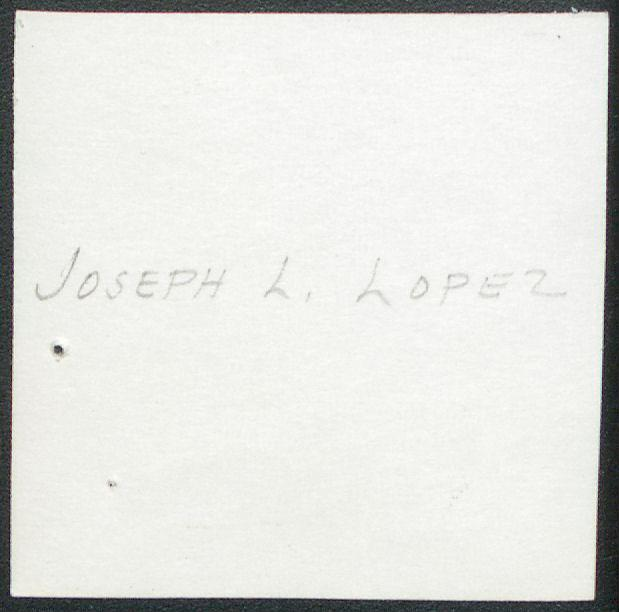 JOSEPH L. LOPEZ